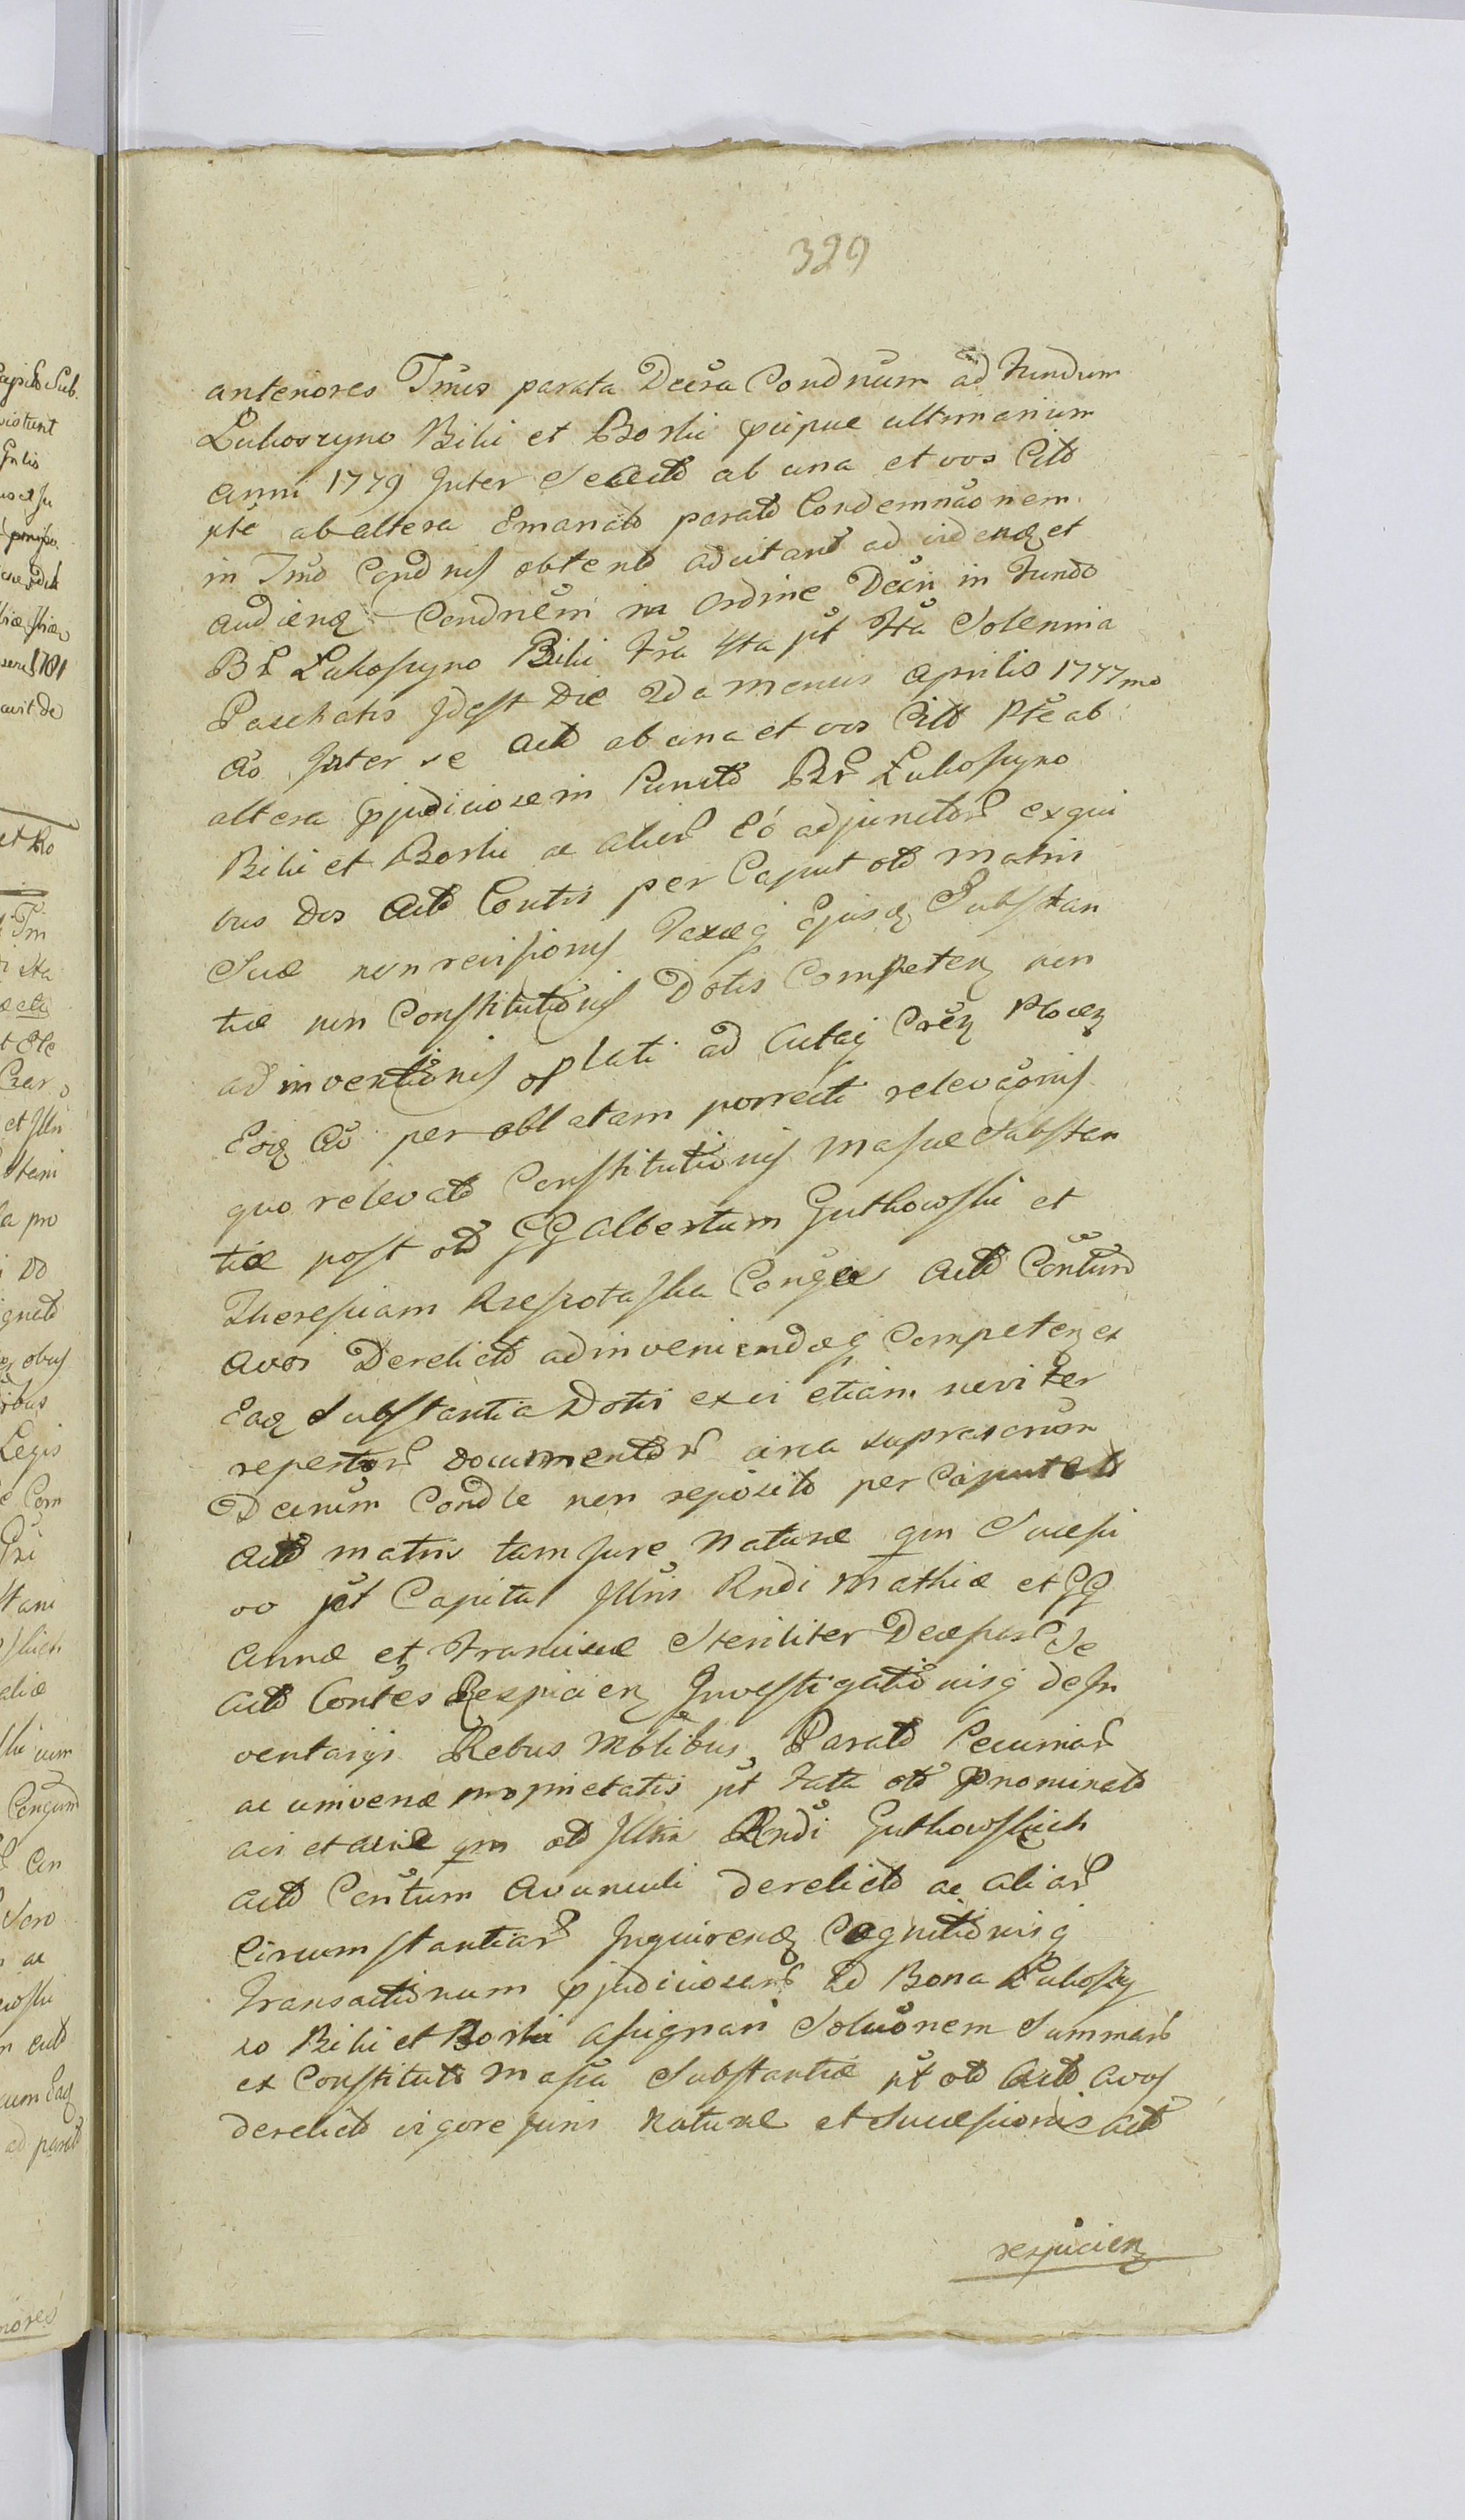 329
anteriores Tmis parata Decra Condnum ad Fundum
Lukoszyno Biki et Borki ppue ultimarium
anni 1779 Inter se Acto ab una et vos Citō
pte ab altera Emanato parato Condemnaōnem
in Tmo Condnis obtento adcitant ad videnq et
audienq Condnem in Ordine Decri in Fundo
Br Lukoszyno Biki Fra 4ta pt Fta Solennia
Paschatis Idest Die 2da mensis Aprilis 1777mo
Ao Inter se Acto ab una et vos Citō Pte ab
altera pjudiciose in Puncto Br Lukoszyno
Biki et Borki ac alior Eo adjunctor ex qui
bus Dos Acto Contis per Caput oto Matris
Suæ non revisionis Taxæq Ejusq Substan
tiæ non Constitutionis Dotis Competen non
adinventionis oblati ad Acta Cren Plocen
Eoq Ao per oblatam porrecti relevaōnis
quo relevato Constitutionis Massæ Substan
tiæ post oto GG Albertum Gutkowski et
Theresiam Rzeszotarska Conges Acto Contum
Avos Derelicto adinveniendæq Competen ex
Eaq Substantia Dotis ex vi etiam noviter
repertor Documentor circa suprascriōm
Decrum Condle non reposito per Caput oto
Acto matris tam Jure Naturæ qm Sucessi
vo pt Capita Illris Rndi Mathiæ et GG
Annæ et Franciscæ Steriliter Decessor Se
Acto Contes Respicien Investigationisq de In
ventarys Rebus Mblibus, Parato Pecuniar
ac universæ proprietatis pt Fata oto pnominato
avi et aviæ qm oto Illris Rndi Gutkowskich
Acto Contum Avunculi derelicto ac aliar
Circumstantiar Inquirenq Cognitionisq
Transactionum pjudiciosar ad Bona Lukoszy
no Biki et Borki assignari Soluōnem Summar
ex Constituto Massa Substantiæ pt oto Acto Avos
derelicto vigore Juris Naturæ et Sucessionis Acto
respicien